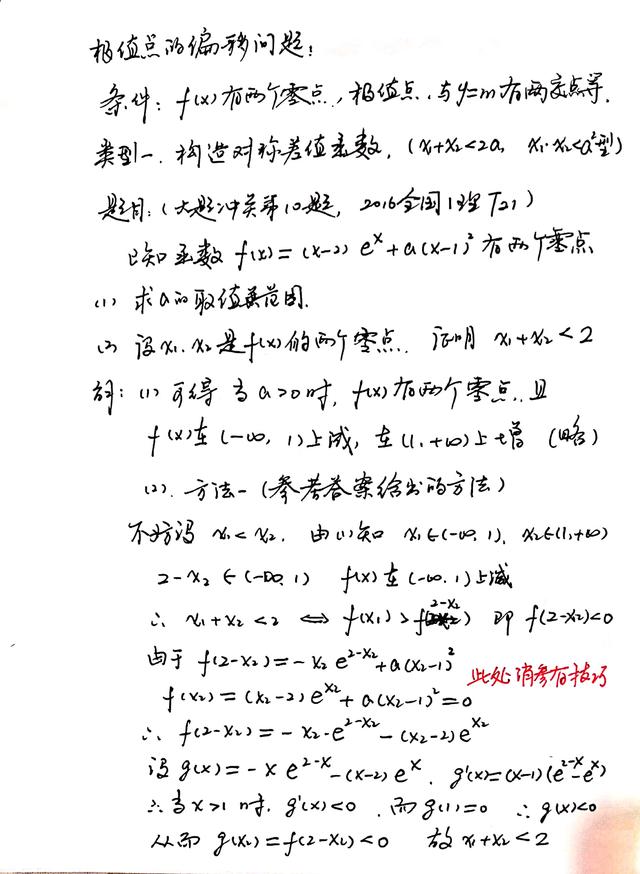 极值点的偏移问题:
条件: f(x)有两个零点, 极值点, 与y=m有两交点等.
类型一. 构造对称差值函数, (x₁+x₂<2a, x₁·x₂<a²型)
题目: (大题冲关第10题, 2016全国1理T21)
已知函数 f(x)=(x-2)eˣ+a(x-1)²有两个零点
(1) 求a的取值范围.
(2) 设x₁.x₂是f(x)的两个零点. 证明 x₁+x₂<2
解: (1) 可得 当a>0时, f(x)有两个零点, 且
f(x)在(-∞, 1)上减, 在(1,+∞)上增 (略)
(2). 方法一 (参考答案给出的方法)
不妨设 x₁<x₂. 由(1)知 x₁∈(-∞,1), x₂∈(1,+∞)
2-x₂∈(-∞,1) f(x)在(-∞,1)上减
∴ x₁+x₂<2 ⇔ f(x₁)>f(2-x₂) 即 f(2-x₂)<0
由于 f(2-x₂)=-x₂e^{2-x₂}+a(x₂-1)²
此处消参有技巧
f(x₂)=(x₂-2)e^{x₂}+a(x₂-1)²=0
∴ f(2-x₂)=-x₂·e^{2-x₂}-(x₂-2)e^{x₂}
设 g(x)=-xe^{2-x}-(x-2)eˣ. g'(x)=(x-1)(e^{2-x}-eˣ)
∴当x>1时, g'(x)<0, 而g(1)=0 ∴g(x)<0
从而 g(x₂)=f(2-x₂)<0 故 x₁+x₂<2